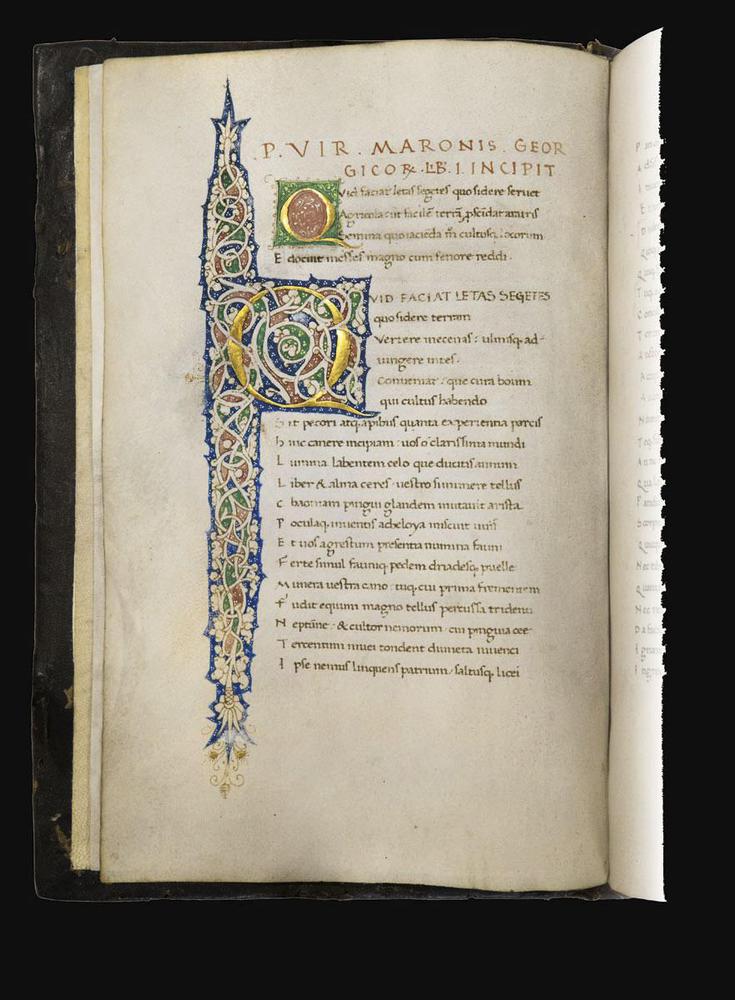 P. VIR. MARONIS. GEOR
GICOꝜ. LIB. I. INCIPIT
Qvid faciat letas segetes quo sidere seruet
Agricola ut facilē terrā pscīdat aratris
Semina quo iacieda m̄ cultusq; locorum
E docuit messes magno cum fenore reddi.
QVID FACIAT LETAS SEGETES
quo sidere terram
Vertere mecenas: ulmisq; ad-
iungere uites.
Conueniat: que cura boum
qui cultus habendo
S it pecori atq; apibus quanta experientia parcis
h inc canere incipiam: uos o clarissima mundi
L umina labentem celo que ducitis annum
L iber & alma ceres: uestro si munere tellus
C haoniam pingui glandem mutauit arista
P oculaq; inuentis acheloya miscuit uuis
E t uos agrestum presentia numina fauni
F erte simul fauniq; pedem driadesq; puelle
M unera uestra cano: tuq; cui prima frementem
F udit equum magno tellus percussa tridenti
N eptūne: & cultor nemorum: cui pinguia cee
T ercentum niuei tondent dumeta iuuenci
I pse nemus linquens patrium: saltusq; licei